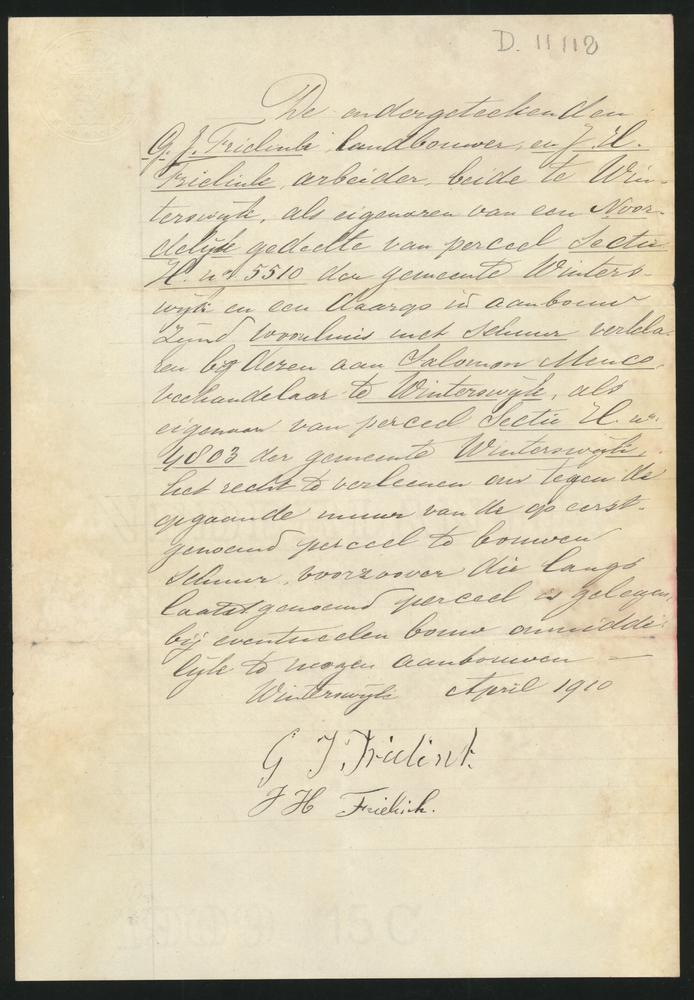 D. 11112
De ondergeteekenden
G. J. Frielink landbouwer, en J. H.
Frielink, arbeider, beide te Win-
terswijk, als eigenaren van een Noor-
delijk gedeelte van perceel Sectie
H. no 5510 der gemeente Winters-
wijk en een daarop in aanbouw
zijnd woonhuis met schuur verkla-
ren bij dezen aan Salomon Menco,
veehandelaar te Winterswijk, als
eigenaar van perceel Sectie H. no.
4803 der gemeente Winterswijk,
het recht te verleenen om tegen de
opgaande muur van de op eerst-
genoemd perceel te bouwen
schuur, voorzoover die langs
laatstgenoemd perceel is gelegen,
bij eventueelen bouw onmidde-
lijk te mogen aanbouwen —
Winterswijk April 1910
G J. Frielink.
J H Frielink.
15 C